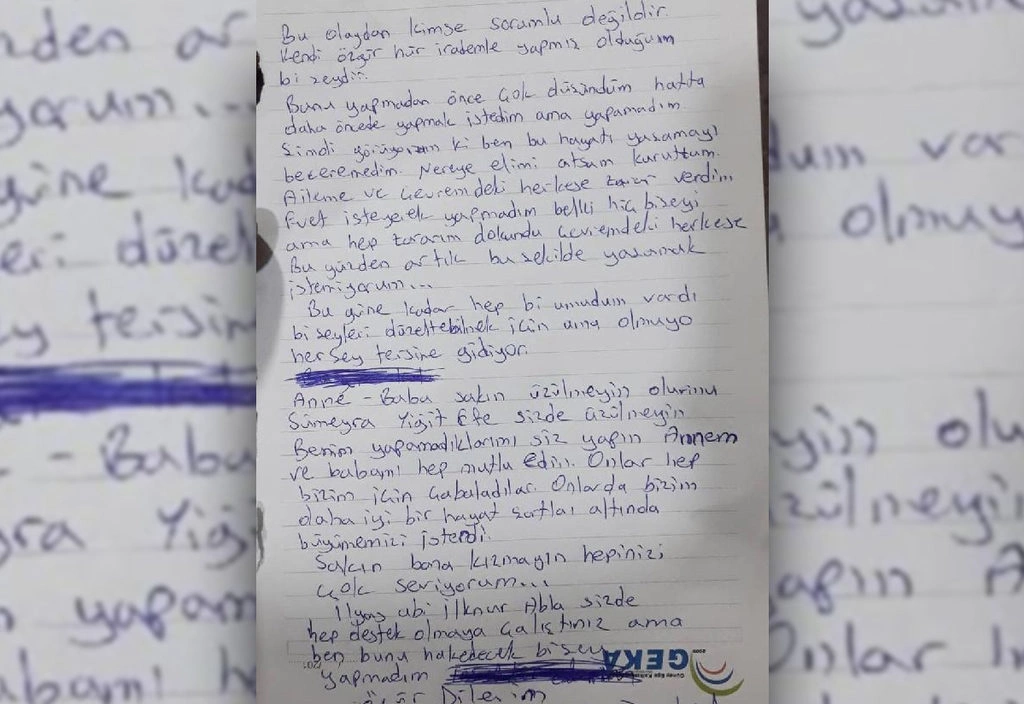 Bu olaydan kimse sorumlu değildir.
Kendi özgür hür irademle yapmış olduğum
bi şeydir.
Bunu yapmadan önce çok düşündüm hatta
daha öncede yapmak istedim ama yapamadım.
Şimdi görüyorum ki ben bu hayatı yaşamayı
beceremedim. Nereye elimi atsam kuruttum.
Aileme ve çevremdeki herkese zarar verdim
Evet isteyerek yapmadım belki hiç bişeyi
ama hep zararım dokundu çevremdeki herkese
Bu yüzden artık bu şekilde yaşamak
istemiyorum...
Bu güne kadar hep bi umudum vardı
bi şeyleri düzeltebilmek için ama olmuyo
herşey tersine gidiyor.
Anne - Baba sakın üzülmeyin olurmu
Sümeyra Yiğit Efe sizde üzülmeyin
Benim yapamadıklarımı siz yapın Annem
ve babamı hep mutlu edin. Onlar hep
bizim için çabaladılar. Onlarda bizim
daha iyi bir hayat şartları altında
büyümemizi istendi.
Sakın bana kızmayın hepinizi
çok seviyorum...
İlyas abi İlknur Abla sizde
hep destek olmaya çalıştınız ama
ben bunu hakedecek bişey
yapmadım
Özür Dilerim
GEKA